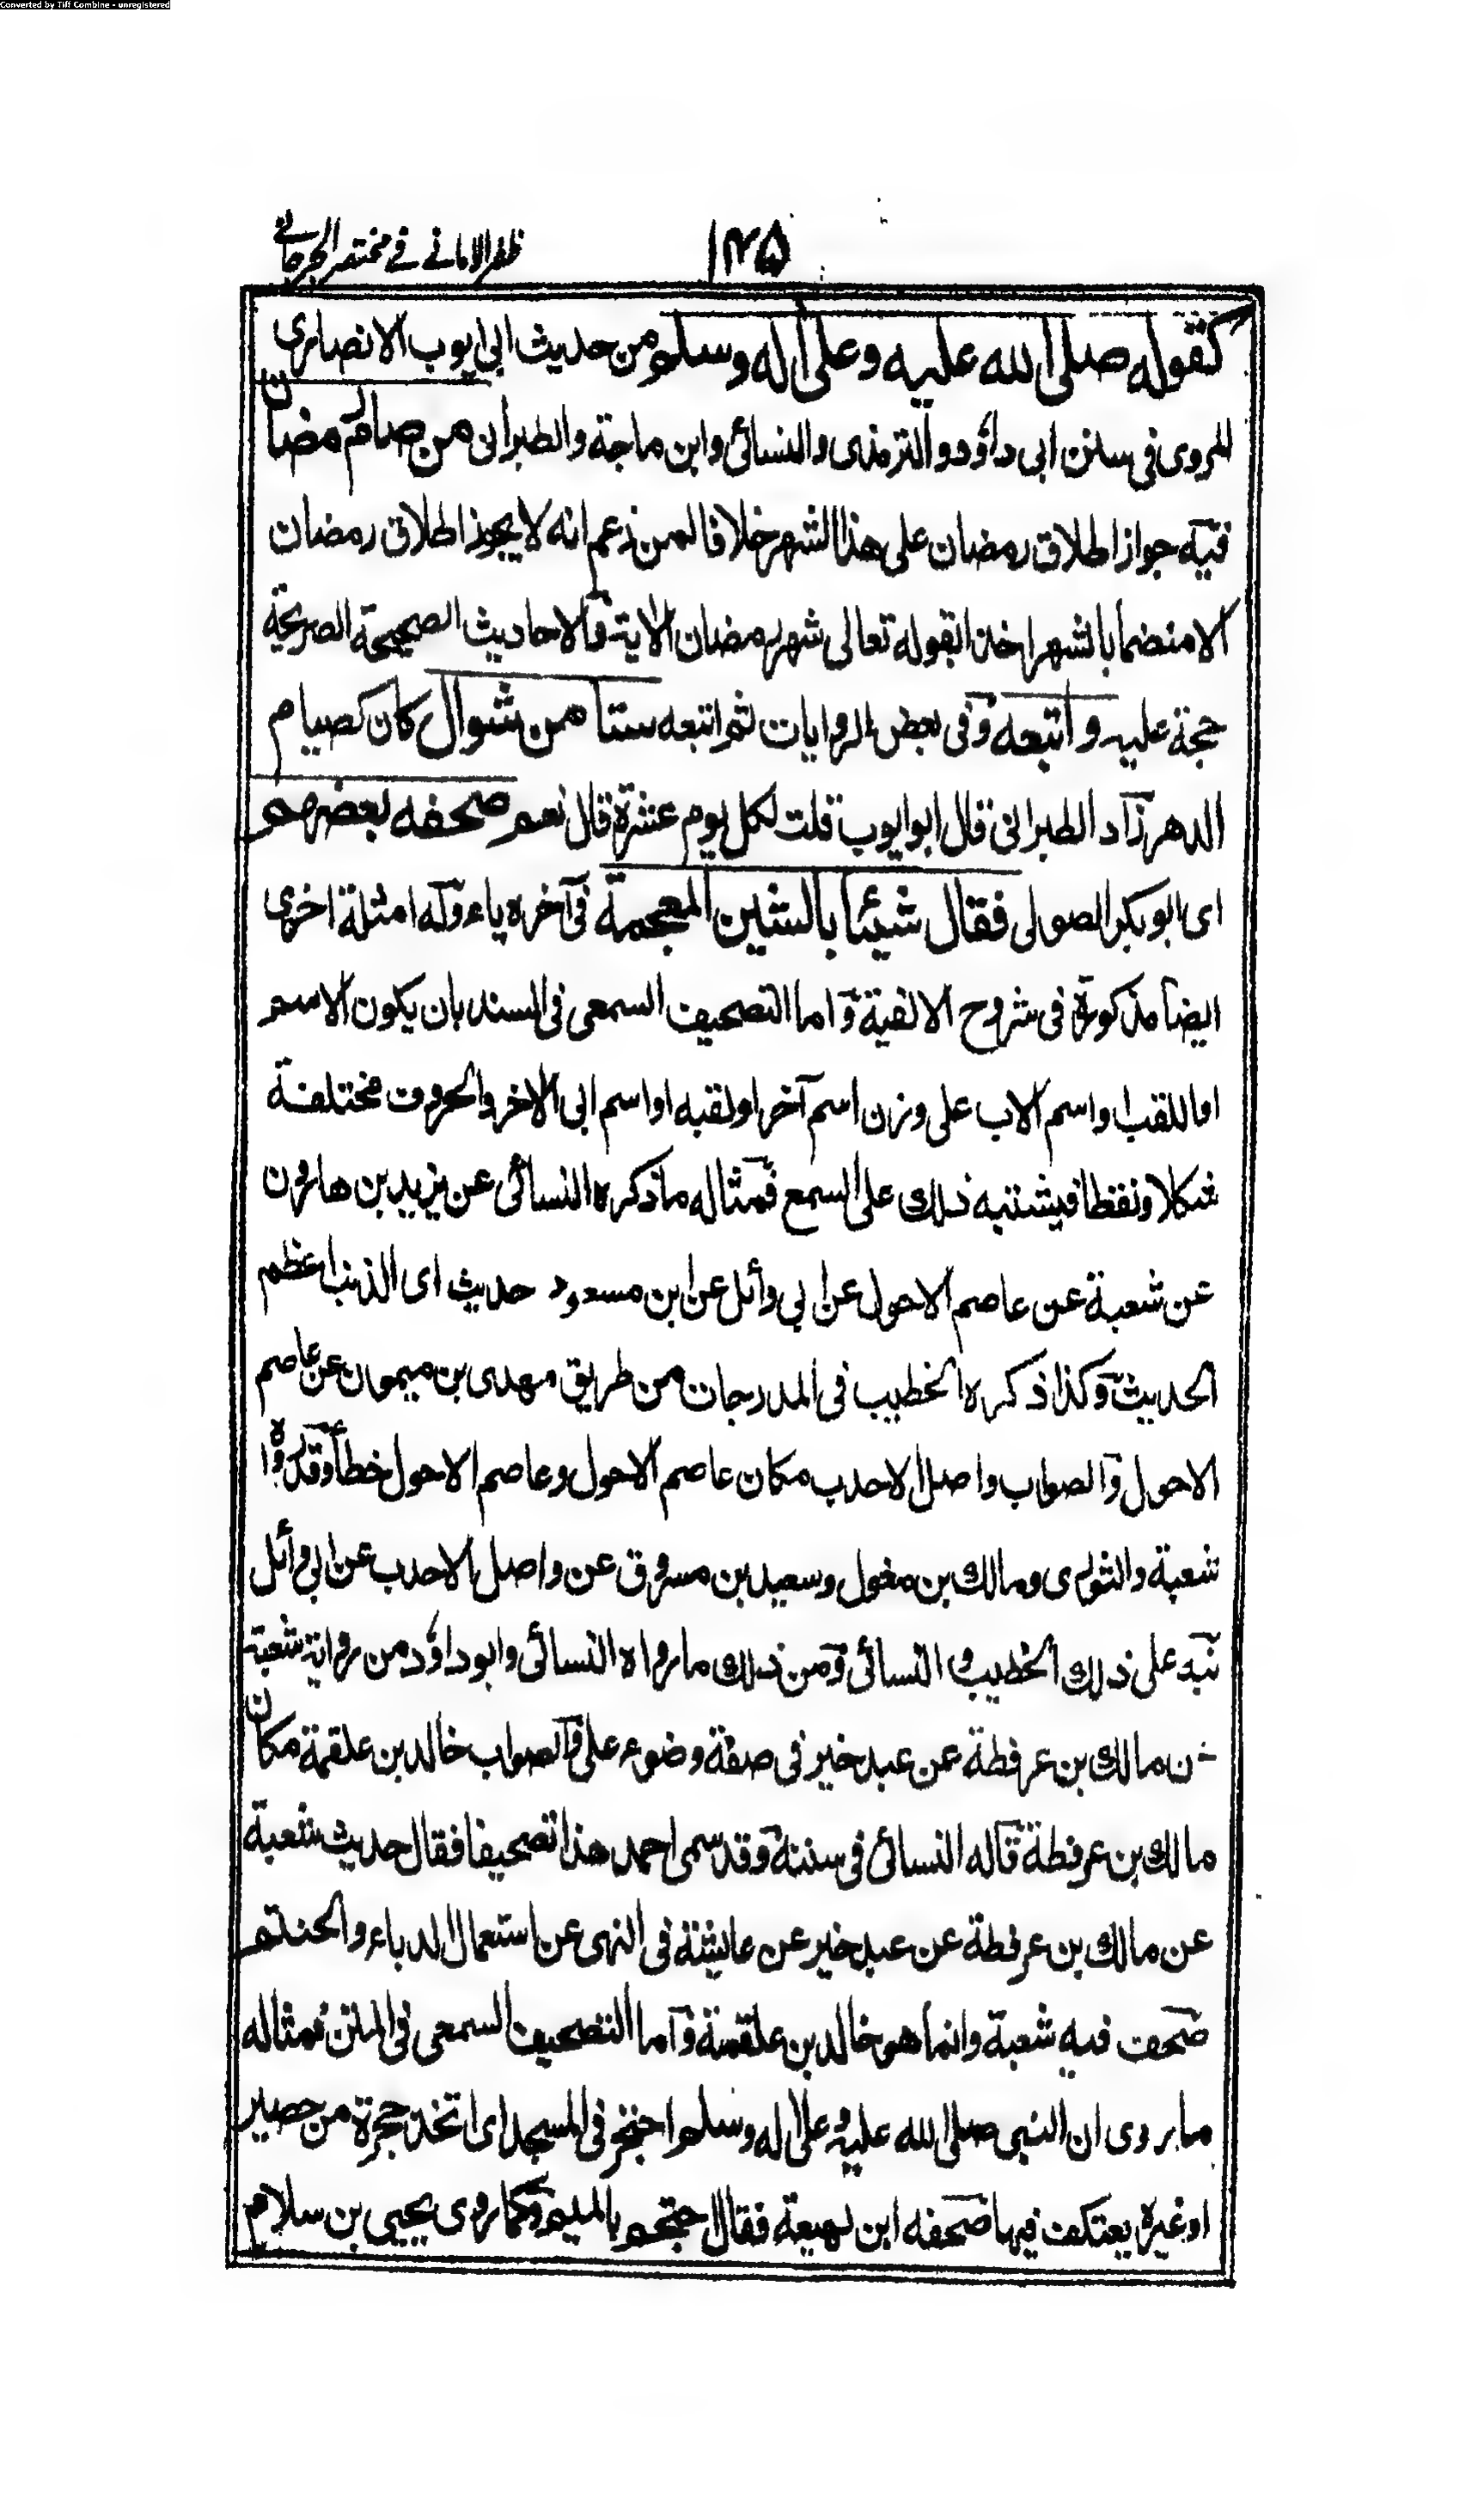 Converted by Tiff Combine - unregistered
١٤٥ ظفر الامانے فے مختصر الجرجانے
كقوله صلى الله عليه وعلى اله وسلم من حديث ابى ايوب الانصارى
المروى فى سنن ابى داؤد والترمذى والنسائى وابن ماجة والطبرانى من صام رمضان
فيه جواز اطلاق رمضان على هذا الشهر خلافا لمن زعم انه لا يجوز اطلاق رمضان
الا منضما بالشهر اخذا بقوله تعالى شهر رمضان الآية والاحاديث الصحيحة الصريحة
حجة عليه واتبعه وفى بعض الروايات ثم اتبعه ستا من شوال كان كصيام
الدهر زاد الطبرانى قال ابو ايوب قلت لكل يوم عشرة قال نعم صحفه بعضهم
اى ابو بكر الصولى فقال شيئا بالشين المعجمة فى آخره ياء وله امثلة اخرى
ايضا مذكورة فى شروح الالفية واما التصحيف السمعى فى السند بان يكون الاسم
او اللقب او اسم الاب على وزن اسم آخر او لقبه او اسم ابى الاخر والحروف مختلفة
شكلا ونقطا فيشتبه ذلك على السمع فمثاله ما ذكره النسائى عن يزيد بن هارون
عن شعبة عن عاصم الاحول عن ابى وائل عن ابن مسعود حديث اى الذنب اعظم
الحديث وكذا ذكره الخطيب فى المدرجات من طريق مهدى بن ميمون عن عاصم
الاحول والصواب واصل الاحدب مكان عاصم الاحول وعاصم الاحول خطأ وقد رواه
شعبة والثورى ومالك بن مغول وسعيد بن مسروق عن واصل الاحدب عن ابى وائل
نبه على ذلك الخطيب و النسائى ومن ذلك ما رواه النسائى وابو داؤد من رواية شعبة
عن مالك بن عرفطة عن عبد خير فى صفة وضوء على والصواب خالد بن علقمة مكان
مالك بن عرفطة قاله النسائى فى سننه وقد سمى احمد هذا تصحيفا فقال حديث شعبة
عن مالك بن عرفطة عن عبد خير عن عايشة فى النهى عن استعمال الدباء والحنتم
صحف فيه شعبة وانما هو خالد بن علقمة واما التصحيف السمعى فى المتن فمثاله
ما روى ان النبى صلى الله عليه وعلى اله وسلم احتجر فى المسجد اى اتخذ حجرة من حصير
او غيره يعتكف فيها صحفه ابن لهيعة فقال احتجم بالميم وكما روى يحيى بن سلام